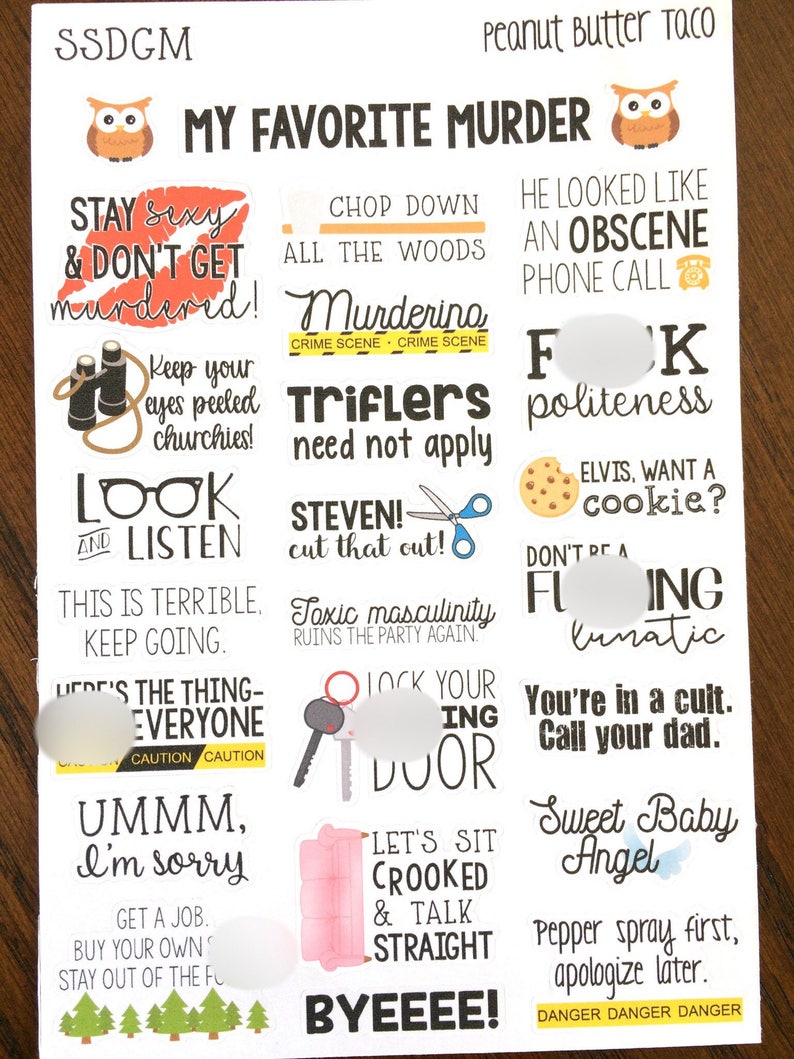 SSDGM
Peanut Butter Taco
MY FAVORITE MURDER
STAY sexy
& DON'T GET
murdered!
CHOP DOWN
ALL THE WOODS
HE LOOKED LIKE
AN OBSCENE
PHONE CALL
Murderino
CRIME SCENE · CRIME SCENE
Keep your
eyes peeled
churchies!
Triflers
need not apply
F K
politeness
LOOK
AND LISTEN
STEVEN!
cut that out!
ELVIS, WANT A
cookie?
DON'T BE A
FU NG
lunatic
THIS IS TERRIBLE,
KEEP GOING.
Toxic masculinity
RUINS THE PARTY AGAIN.
HERE'S THE THING-
EVERYONE
CAUTION CAUTION CAUTION
LOCK YOUR
ING
DOOR
You're in a cult.
Call your dad.
UMMM,
I'm sorry
LET'S SIT
CROOKED
& TALK
STRAIGHT
Sweet Baby
Angel
GET A JOB.
BUY YOUR OWN
STAY OUT OF THE
BYEEEE!
Pepper spray first,
apologize later.
DANGER DANGER DANGER